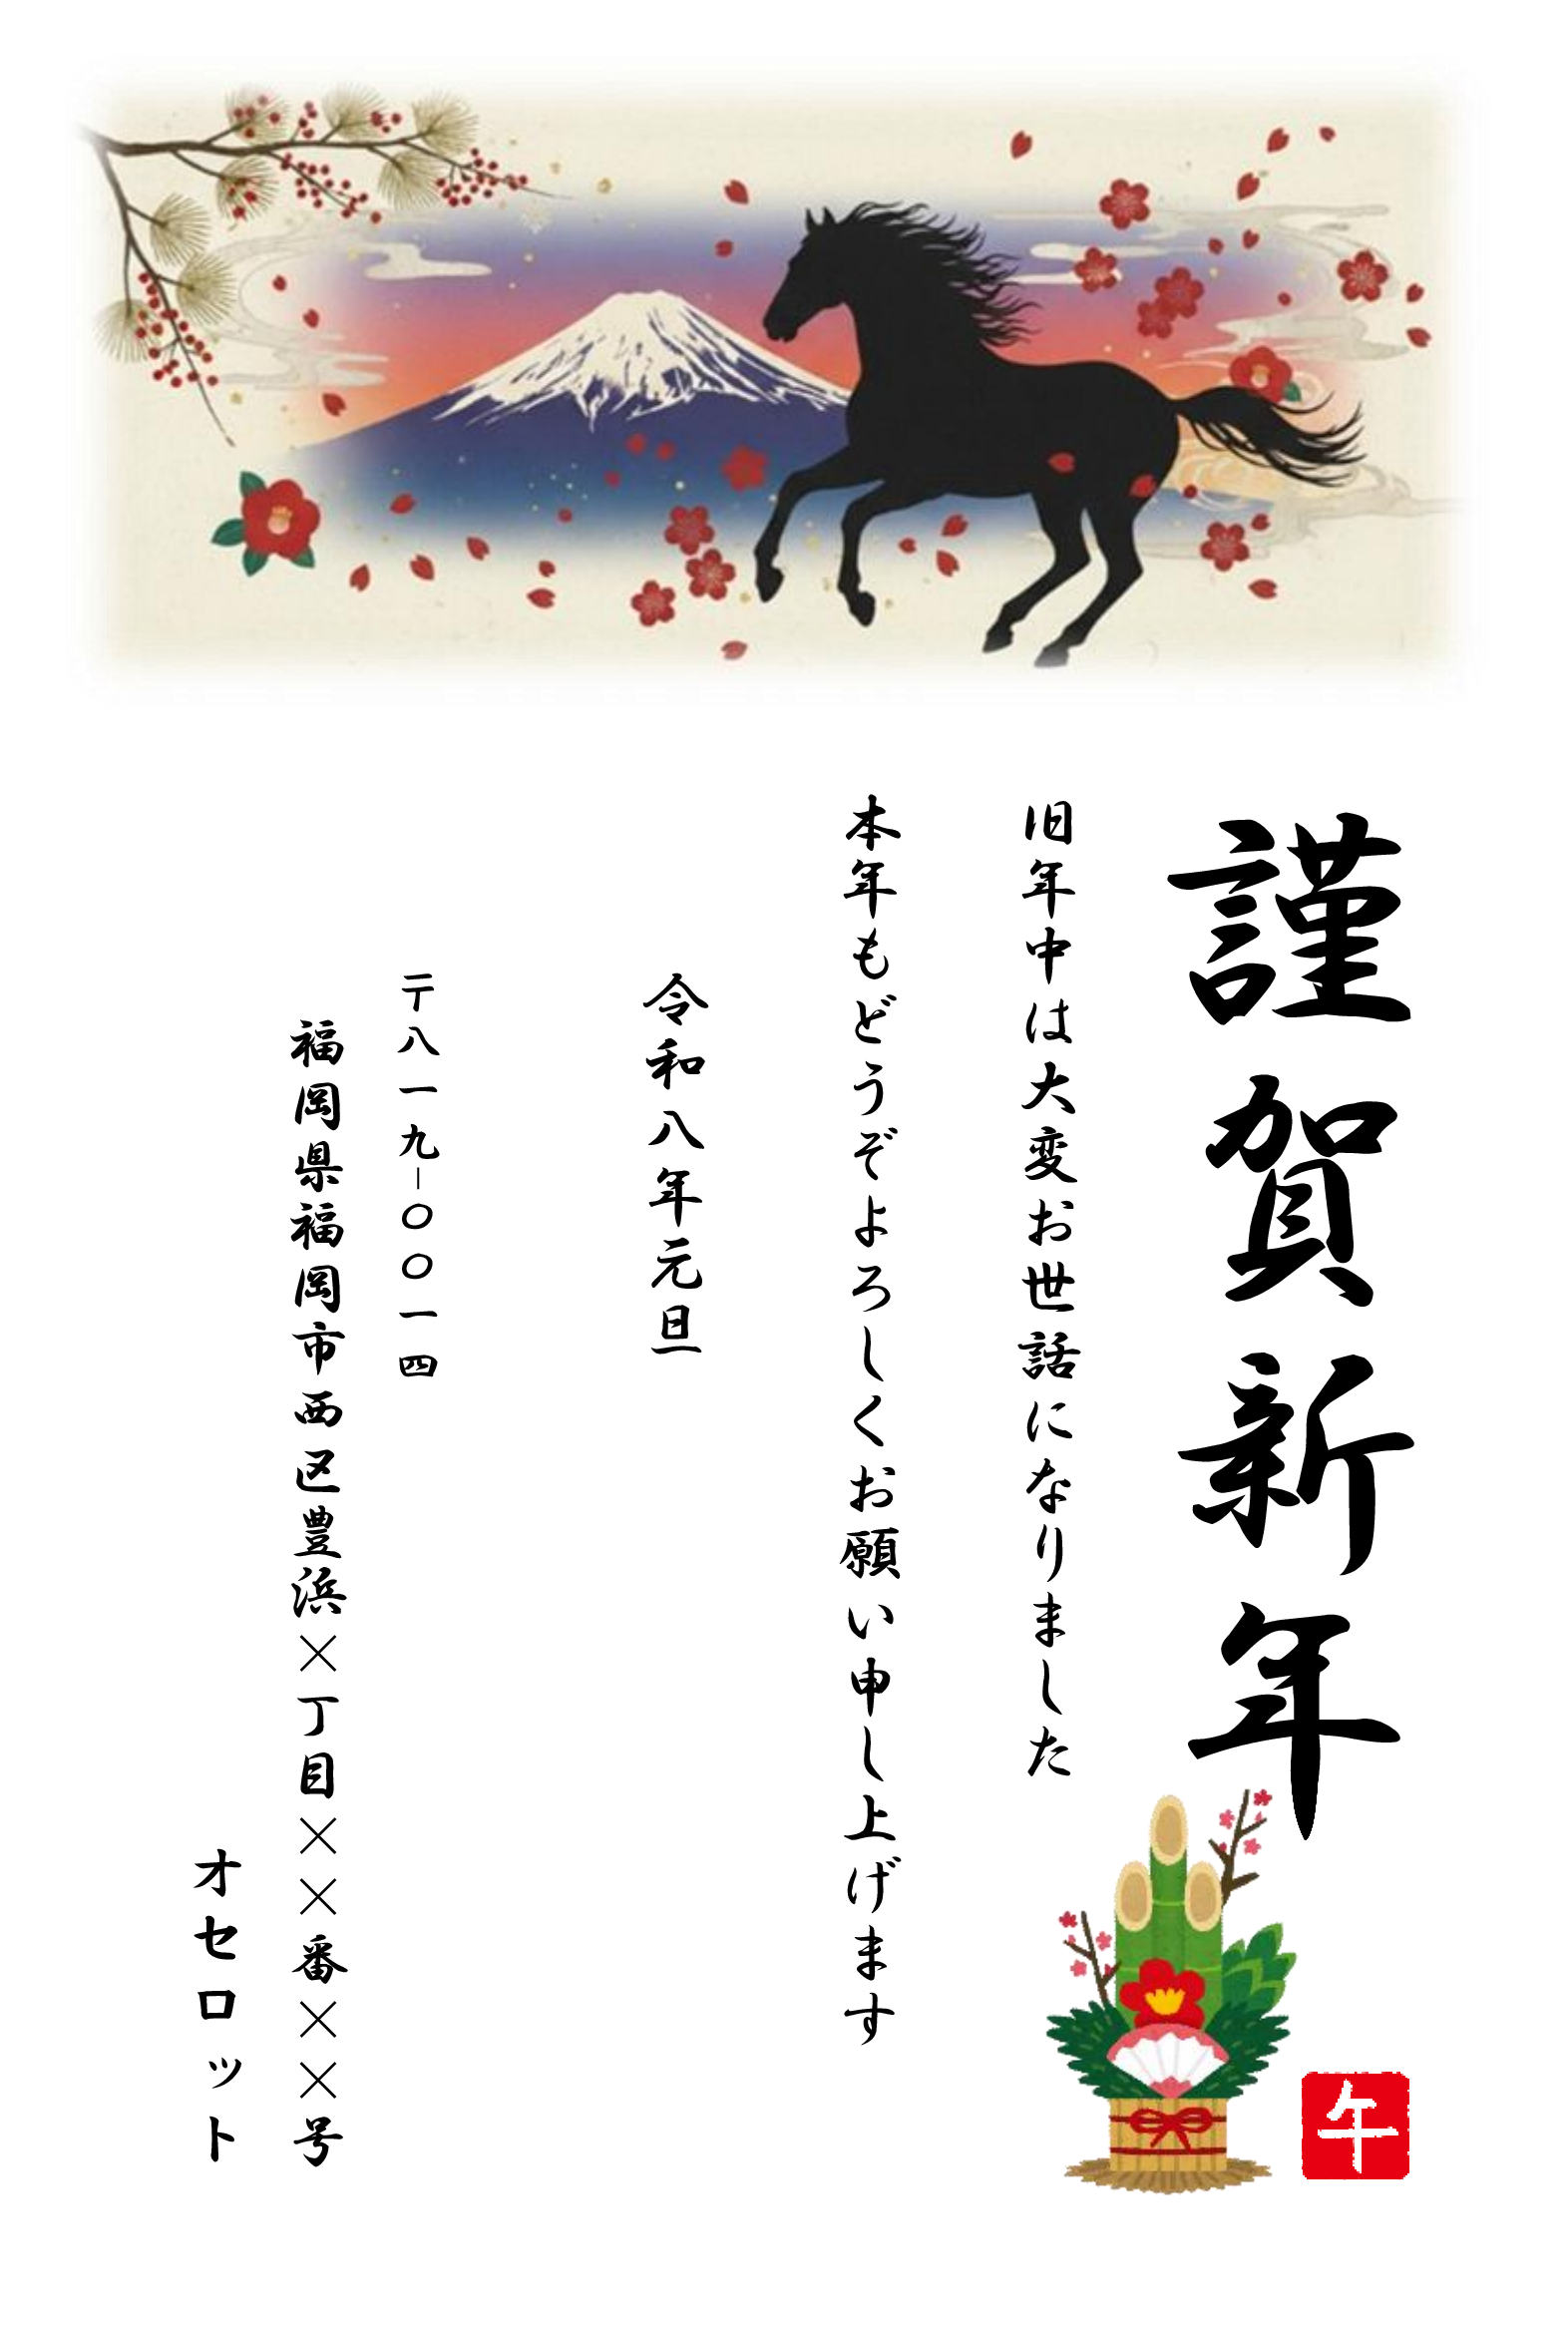 謹賀新年
旧年中は大変お世話になりました
本年もどうぞよろしくお願い申し上げます
令和八年元旦
〒八一九-〇〇一四
福岡県福岡市西区豊浜×丁目××番××号
オセロット
午